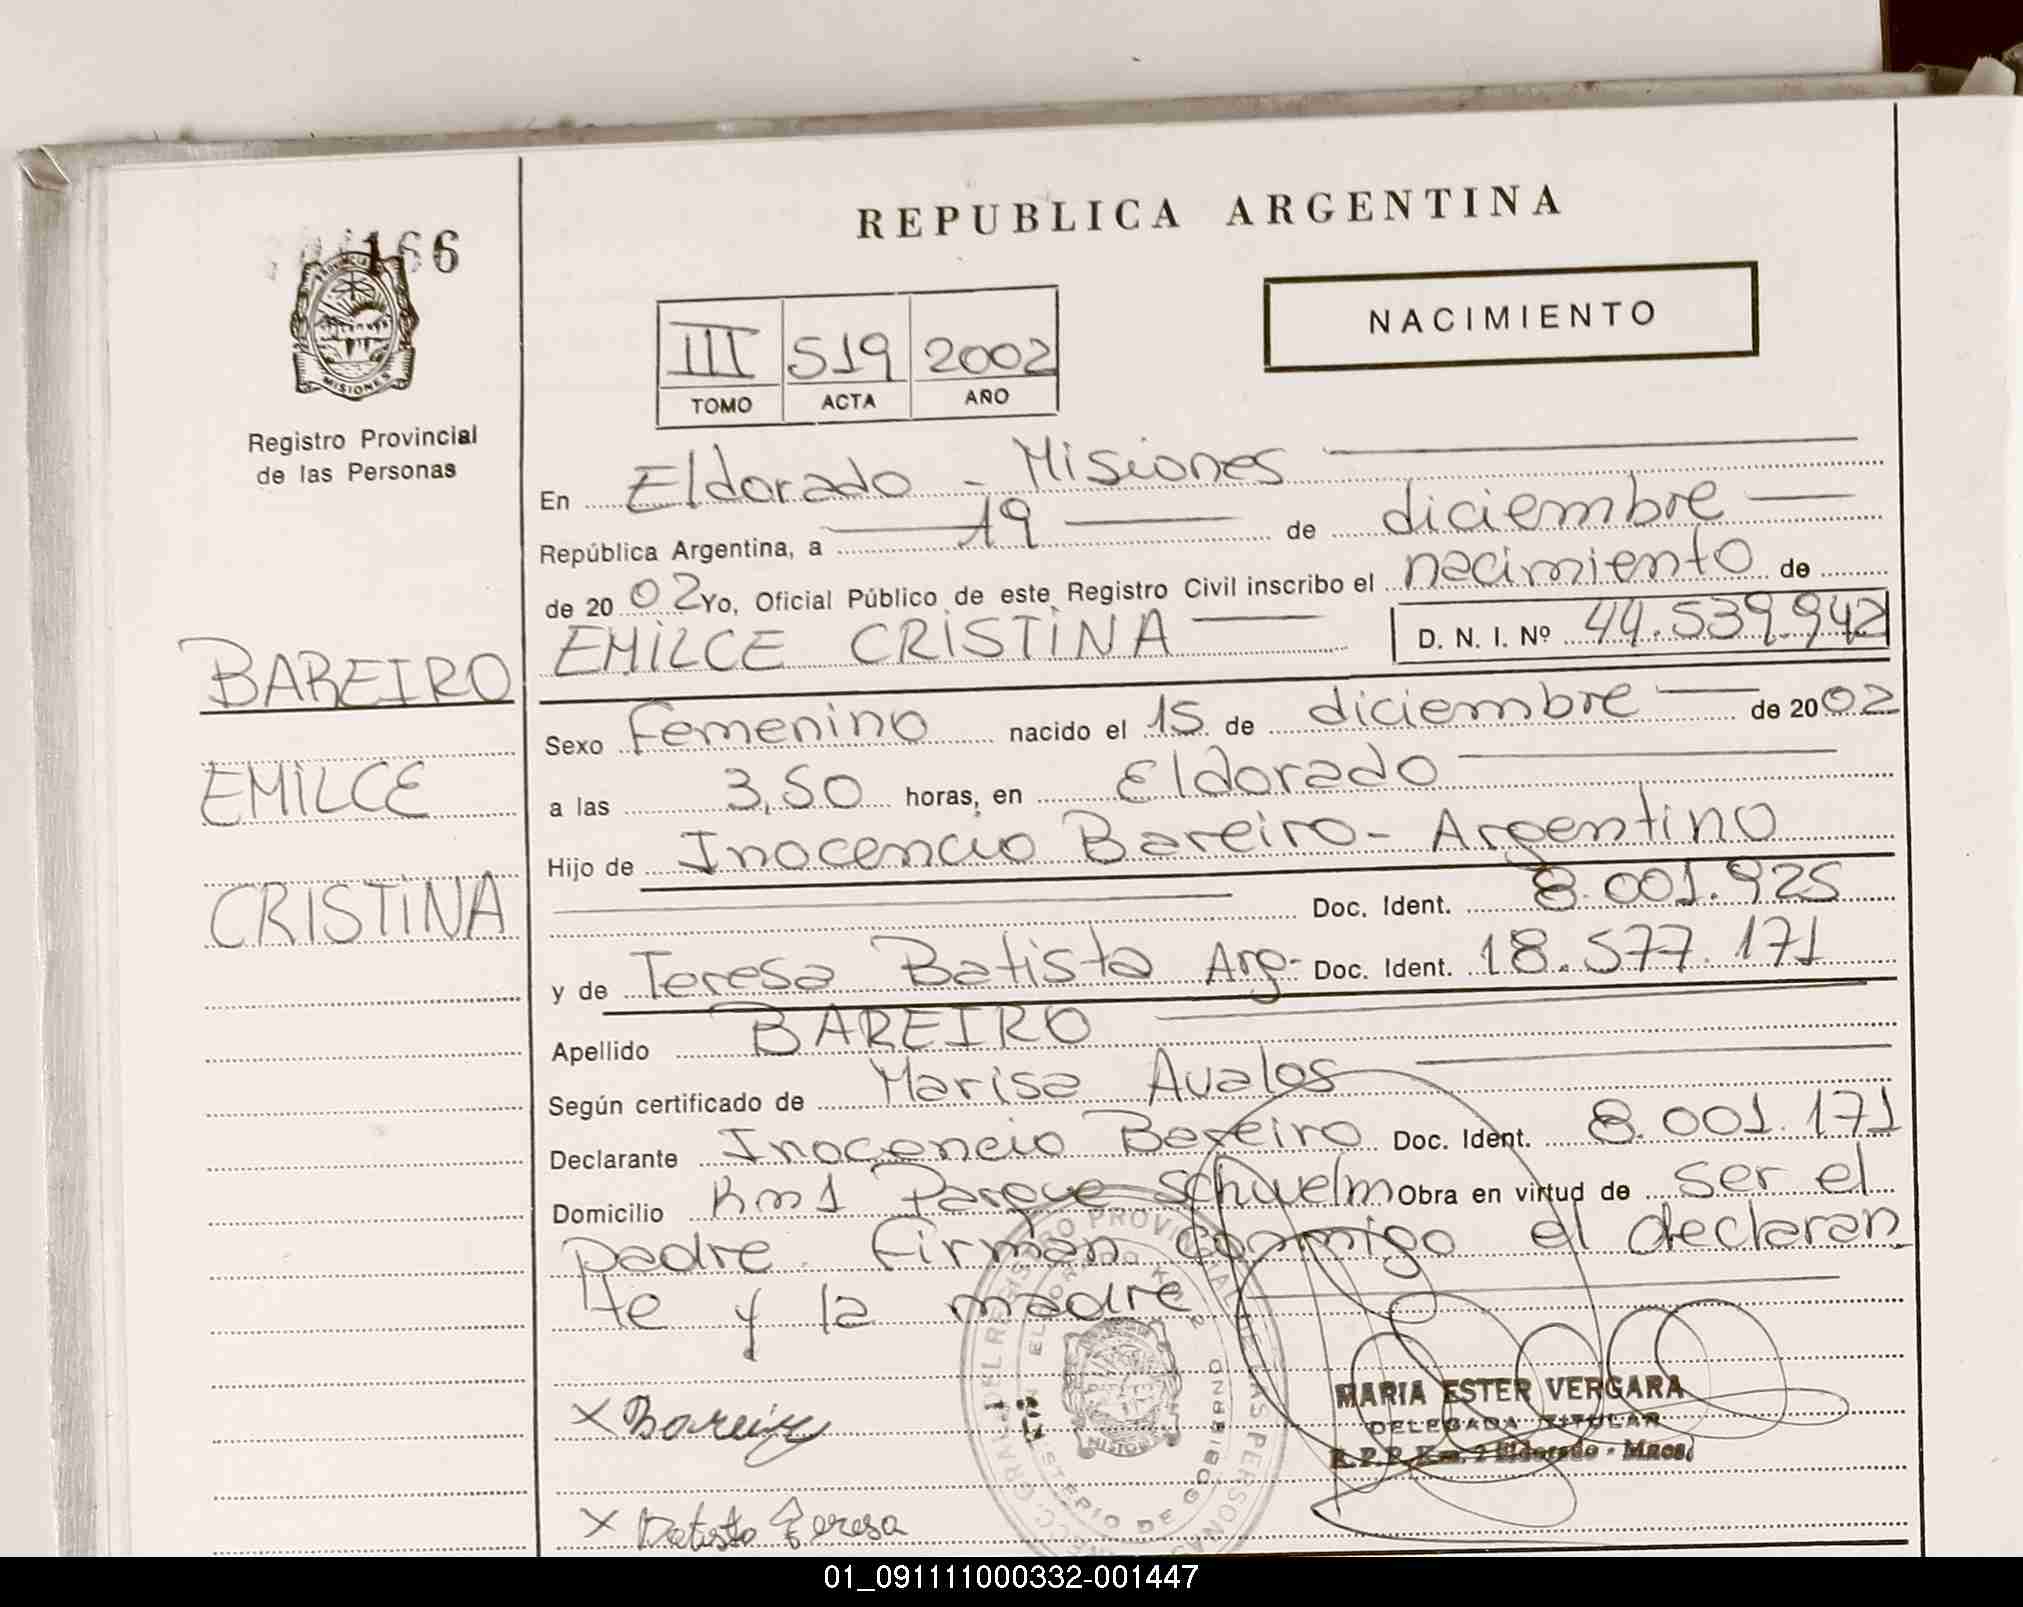 166
PROVINCIA
MISIONES
Registro Provincial
de las Personas
BAREIRO
EMILCE
CRISTINA
REPUBLICA ARGENTINA
NACIMIENTO
III 519 2002
TOMO ACTA AÑO
En Eldorado - Misiones
República Argentina, a 19 de diciembre
de 2002 Yo, Oficial Público de este Registro Civil inscribo el nacimiento de
EMILCE CRISTINA D. N. I. Nº 44.539.942
Sexo Femenino nacido el 15 de diciembre de 2002
a las 3,50 horas, en Eldorado
Hijo de Inocencio Bareiro - Argentino
Doc. Ident. 8.001.925
y de Teresa Batista Arg- Doc. Ident. 18.577.171
Apellido BAREIRO
Según certificado de Marisa Avalos
Declarante Inocencio Bareiro Doc. Ident. 8.001.171
Domicilio Km1 Parque Schwelm Obra en virtud de ser el
padre. Firman conmigo el declaran
te y la madre
X Bareiro
MARIA ESTER VERGARA
DELEGADA TITULAR
R.P.P. Km. 2 Eldorado - Mnes.
X Batista Teresa
REGISTRO PROVINCIAL DE LAS PERSONAS
ELDORADO KM 2
MINISTERIO DE GOBIERNO
MISIONES
01_091111000332-001447